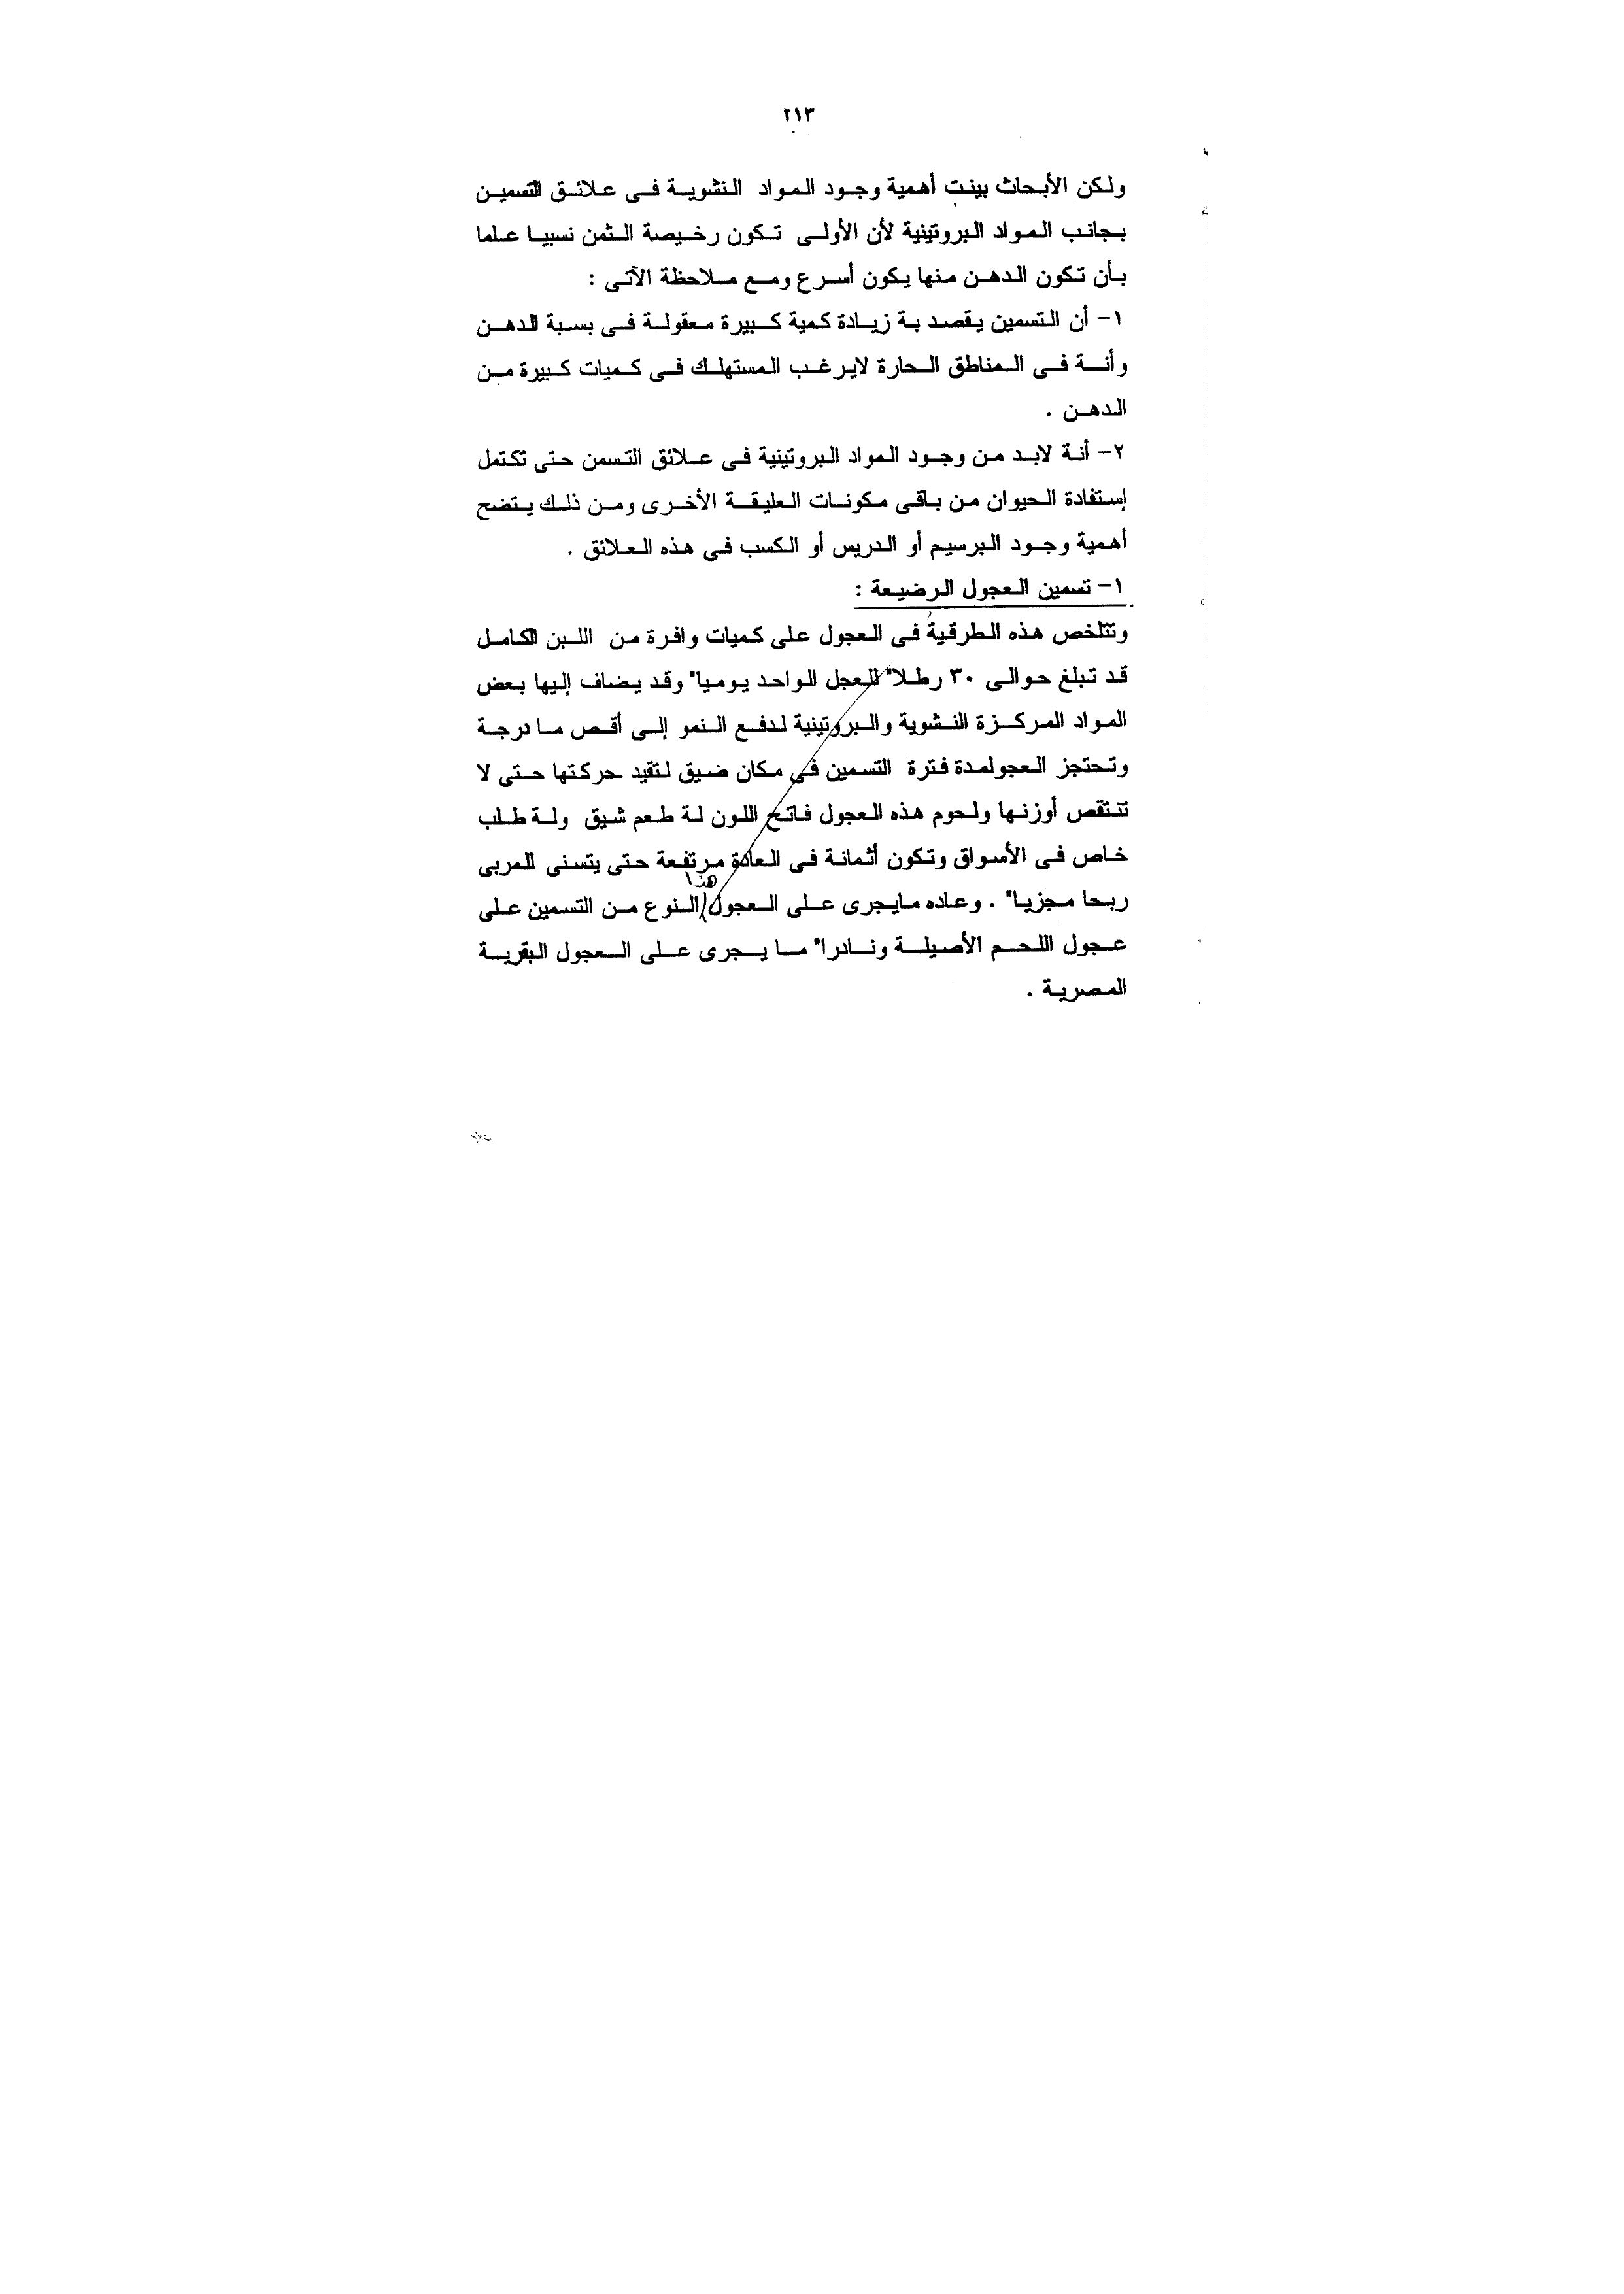 ٢١٣
ولكن الأبحاث بينت أهمية وجود المواد النشوية فى علائق التسمين
بجانب المواد البروتينية لأن الأولى تكون رخيصة الثمن نسبيا علما
بأن تكون الدهن منها يكون أسرع ومع ملاحظة الآتى :
١- أن التسمين يقصد بة زيادة كمية كبيرة معقولة فى بسبة الدهن
وأنة فى المناطق الحارة لايرغب المستهلك فى كميات كبيرة من
الدهن .
٢- أنة لابد من وجود المواد البروتينية فى علائق التسمن حتى تكتمل
إستفادة الحيوان من باقى مكونات العليقة الأخرى ومن ذلك يتضح
أهمية وجود البرسيم أو الدريس أو الكسب فى هذه العلائق .
١- تسمين العجول الرضيعة :
وتتلخص هذه الطرقية فى العجول على كميات وافرة من اللبن الكامل
قد تبلغ حوالى ٣٠ رطلا" للعجل الواحد يوميا" وقد يضاف إليها بعض
المواد المركزة النشوية والبروتينية لدفع النمو إلى أقص ما درجة
وتحتجز العجولمدة فترة التسمين فى مكان ضيق لتقيد حركتها حتى لا
تتنقص أوزنها ولحوم هذه العجول فاتح اللون لة طعم شيق ولة طلب
خاص فى الأسواق وتكون أثمانة فى العادة مرتفعة حتى يتسنى للمربى
هذا
ربحا مجزيا" . وعاده مايجرى على العجول النوع من التسمين على
عجول اللحم الأصيلة ونادرا" ما يجرى على العجول البقرية
المصرية .